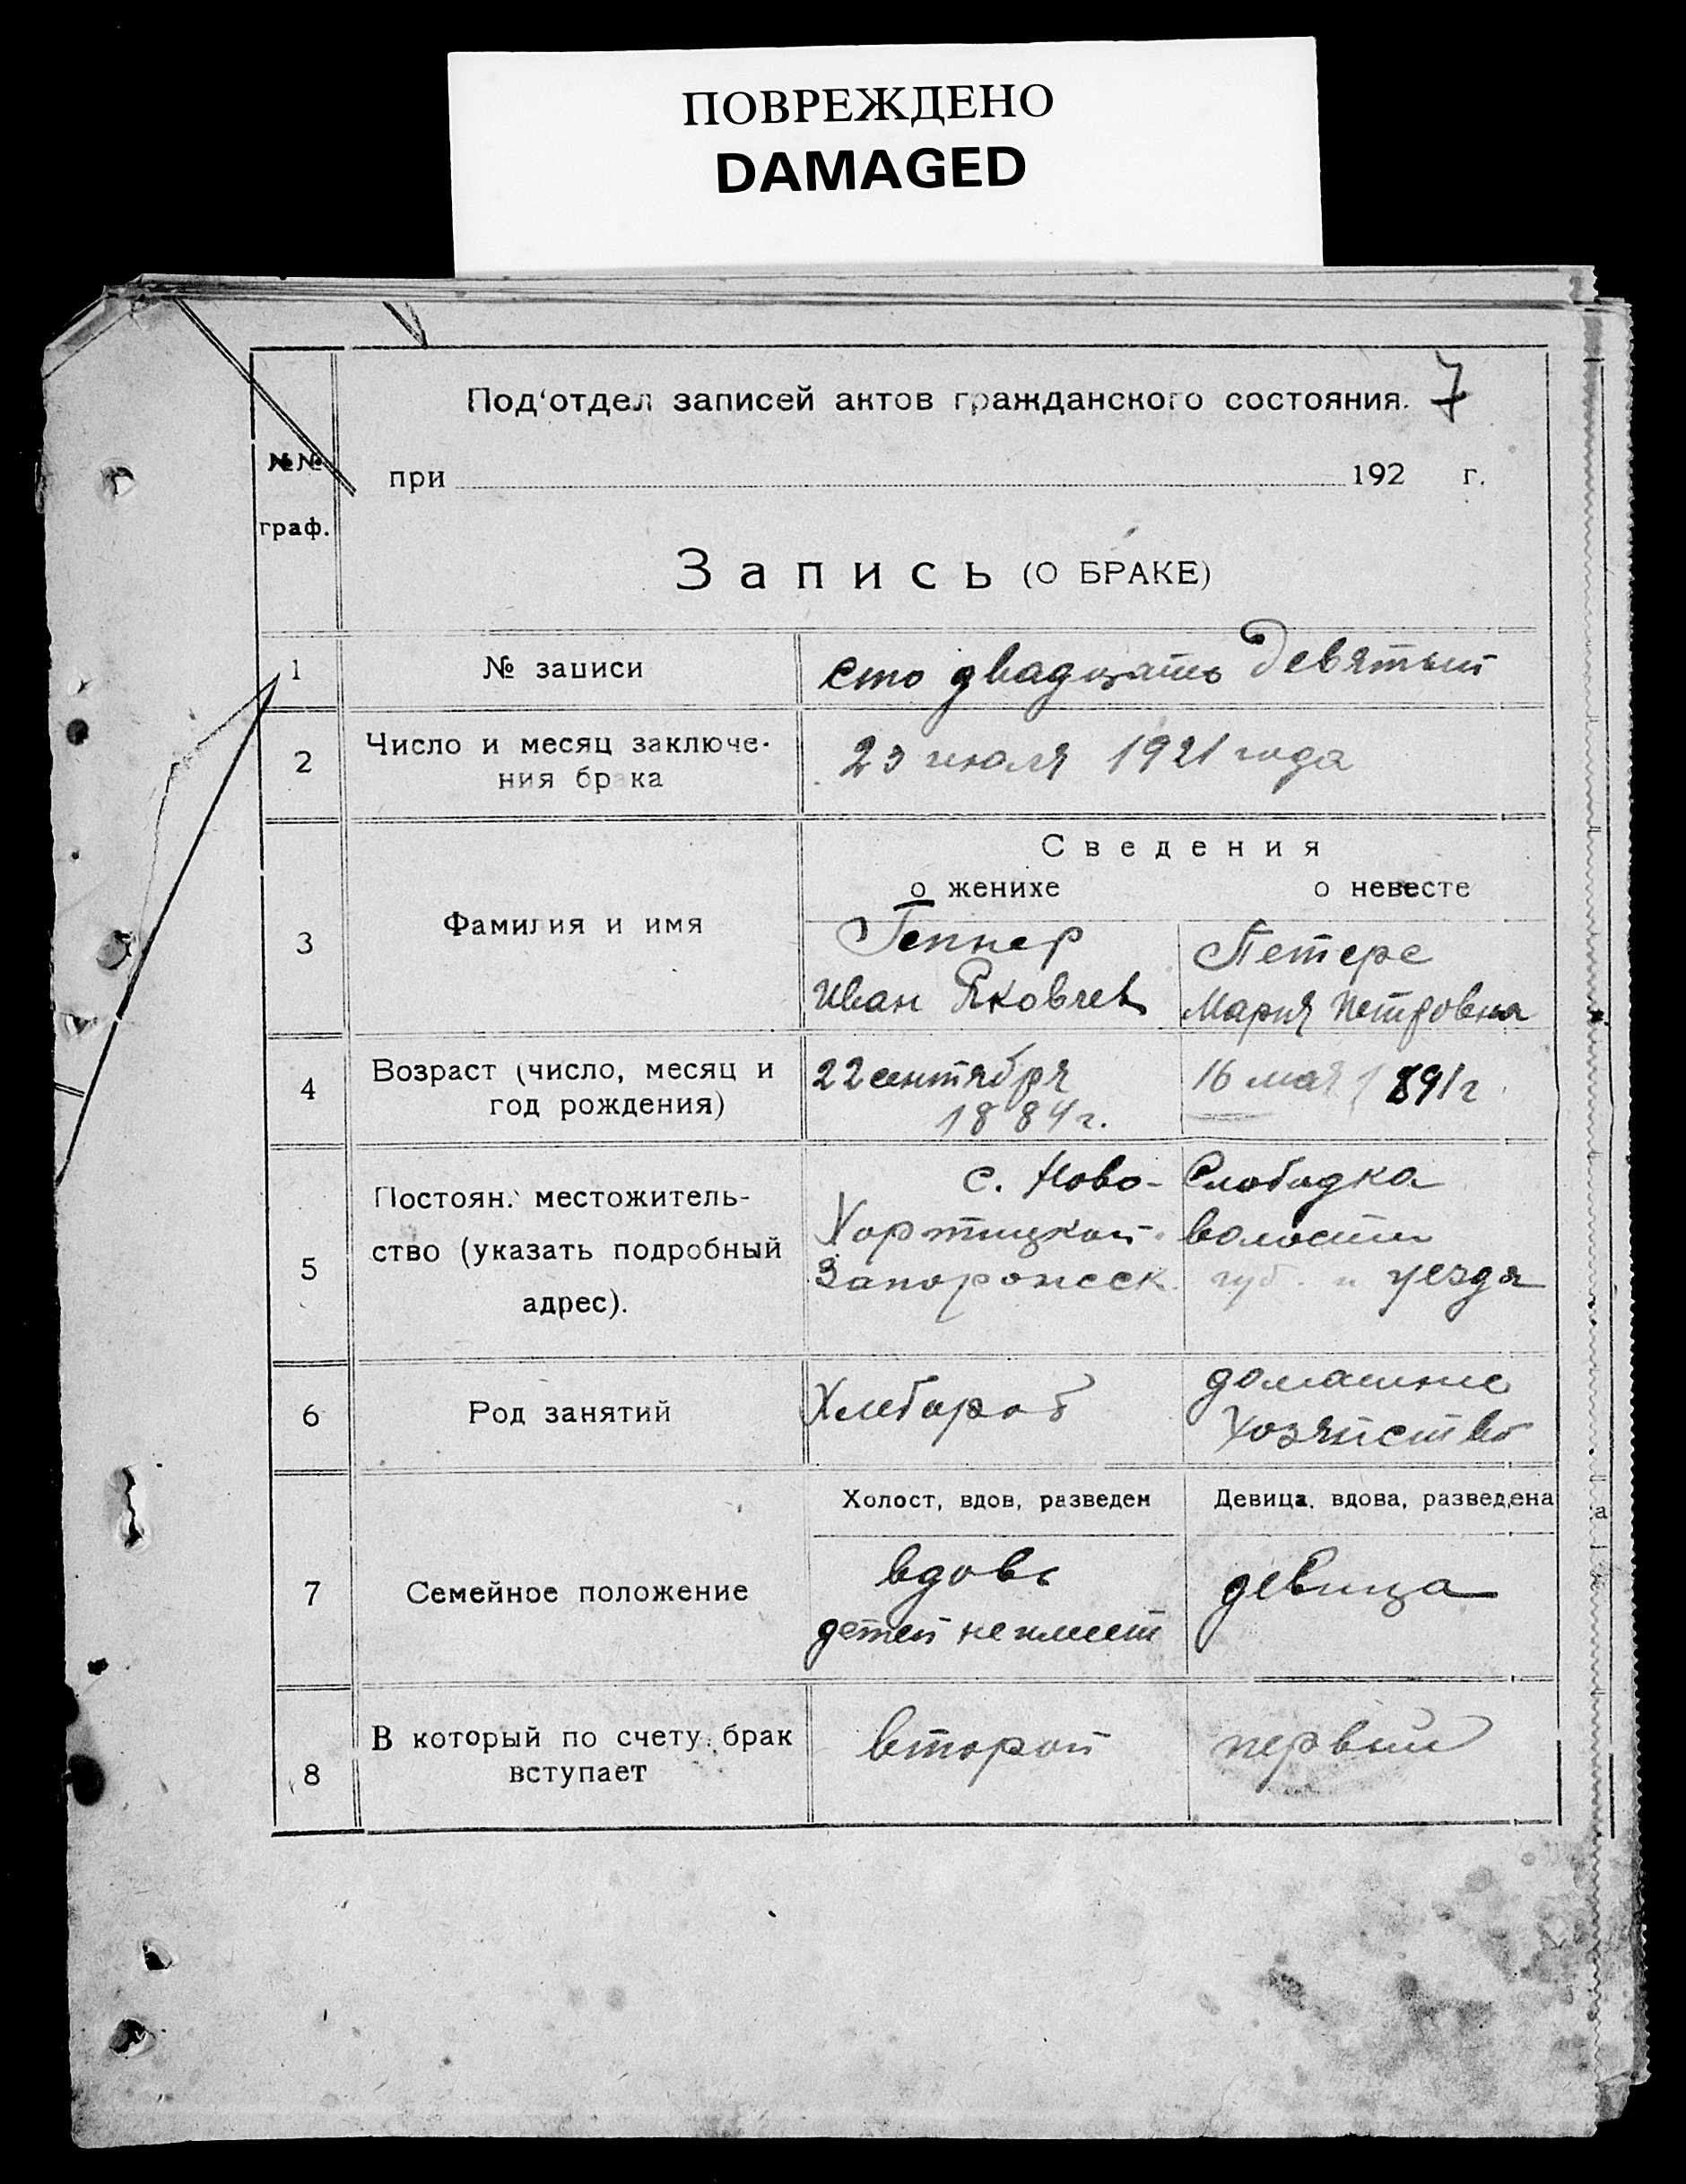 ПОВРЕЖДЕНО
DAMAGED
Под'отдел записей актов гражданского состояния. 7
№№ граф.
при 192 г.
Запись (О БРАКЕ)
1 № записи сто двадцать девятый
2 Число и месяц заключе-
ния бр ка 23 июля 1921 года
Сведения
о женихе о невесте
3 Фамилия и имя Геппер Петерс
Иван Яковлев Мария Петровна
4 Возраст (число, месяц и
год рождения) 22 сентября 1884 г. 16 мая 1891 г.
5 Постоян. местожитель-
ство (указать подробный
адрес).
с. Ново-Слободка
Хортицкой волости
Запорожск. губ. и уезда
6 Род занятий Хлебороб домашнее
хозяйство
Холост, вдов, разведен Девица, вдова, разведена
7 Семейное положение вдовс девица
детей не имеет
8 В который по счету брак
вступает второй первый
а